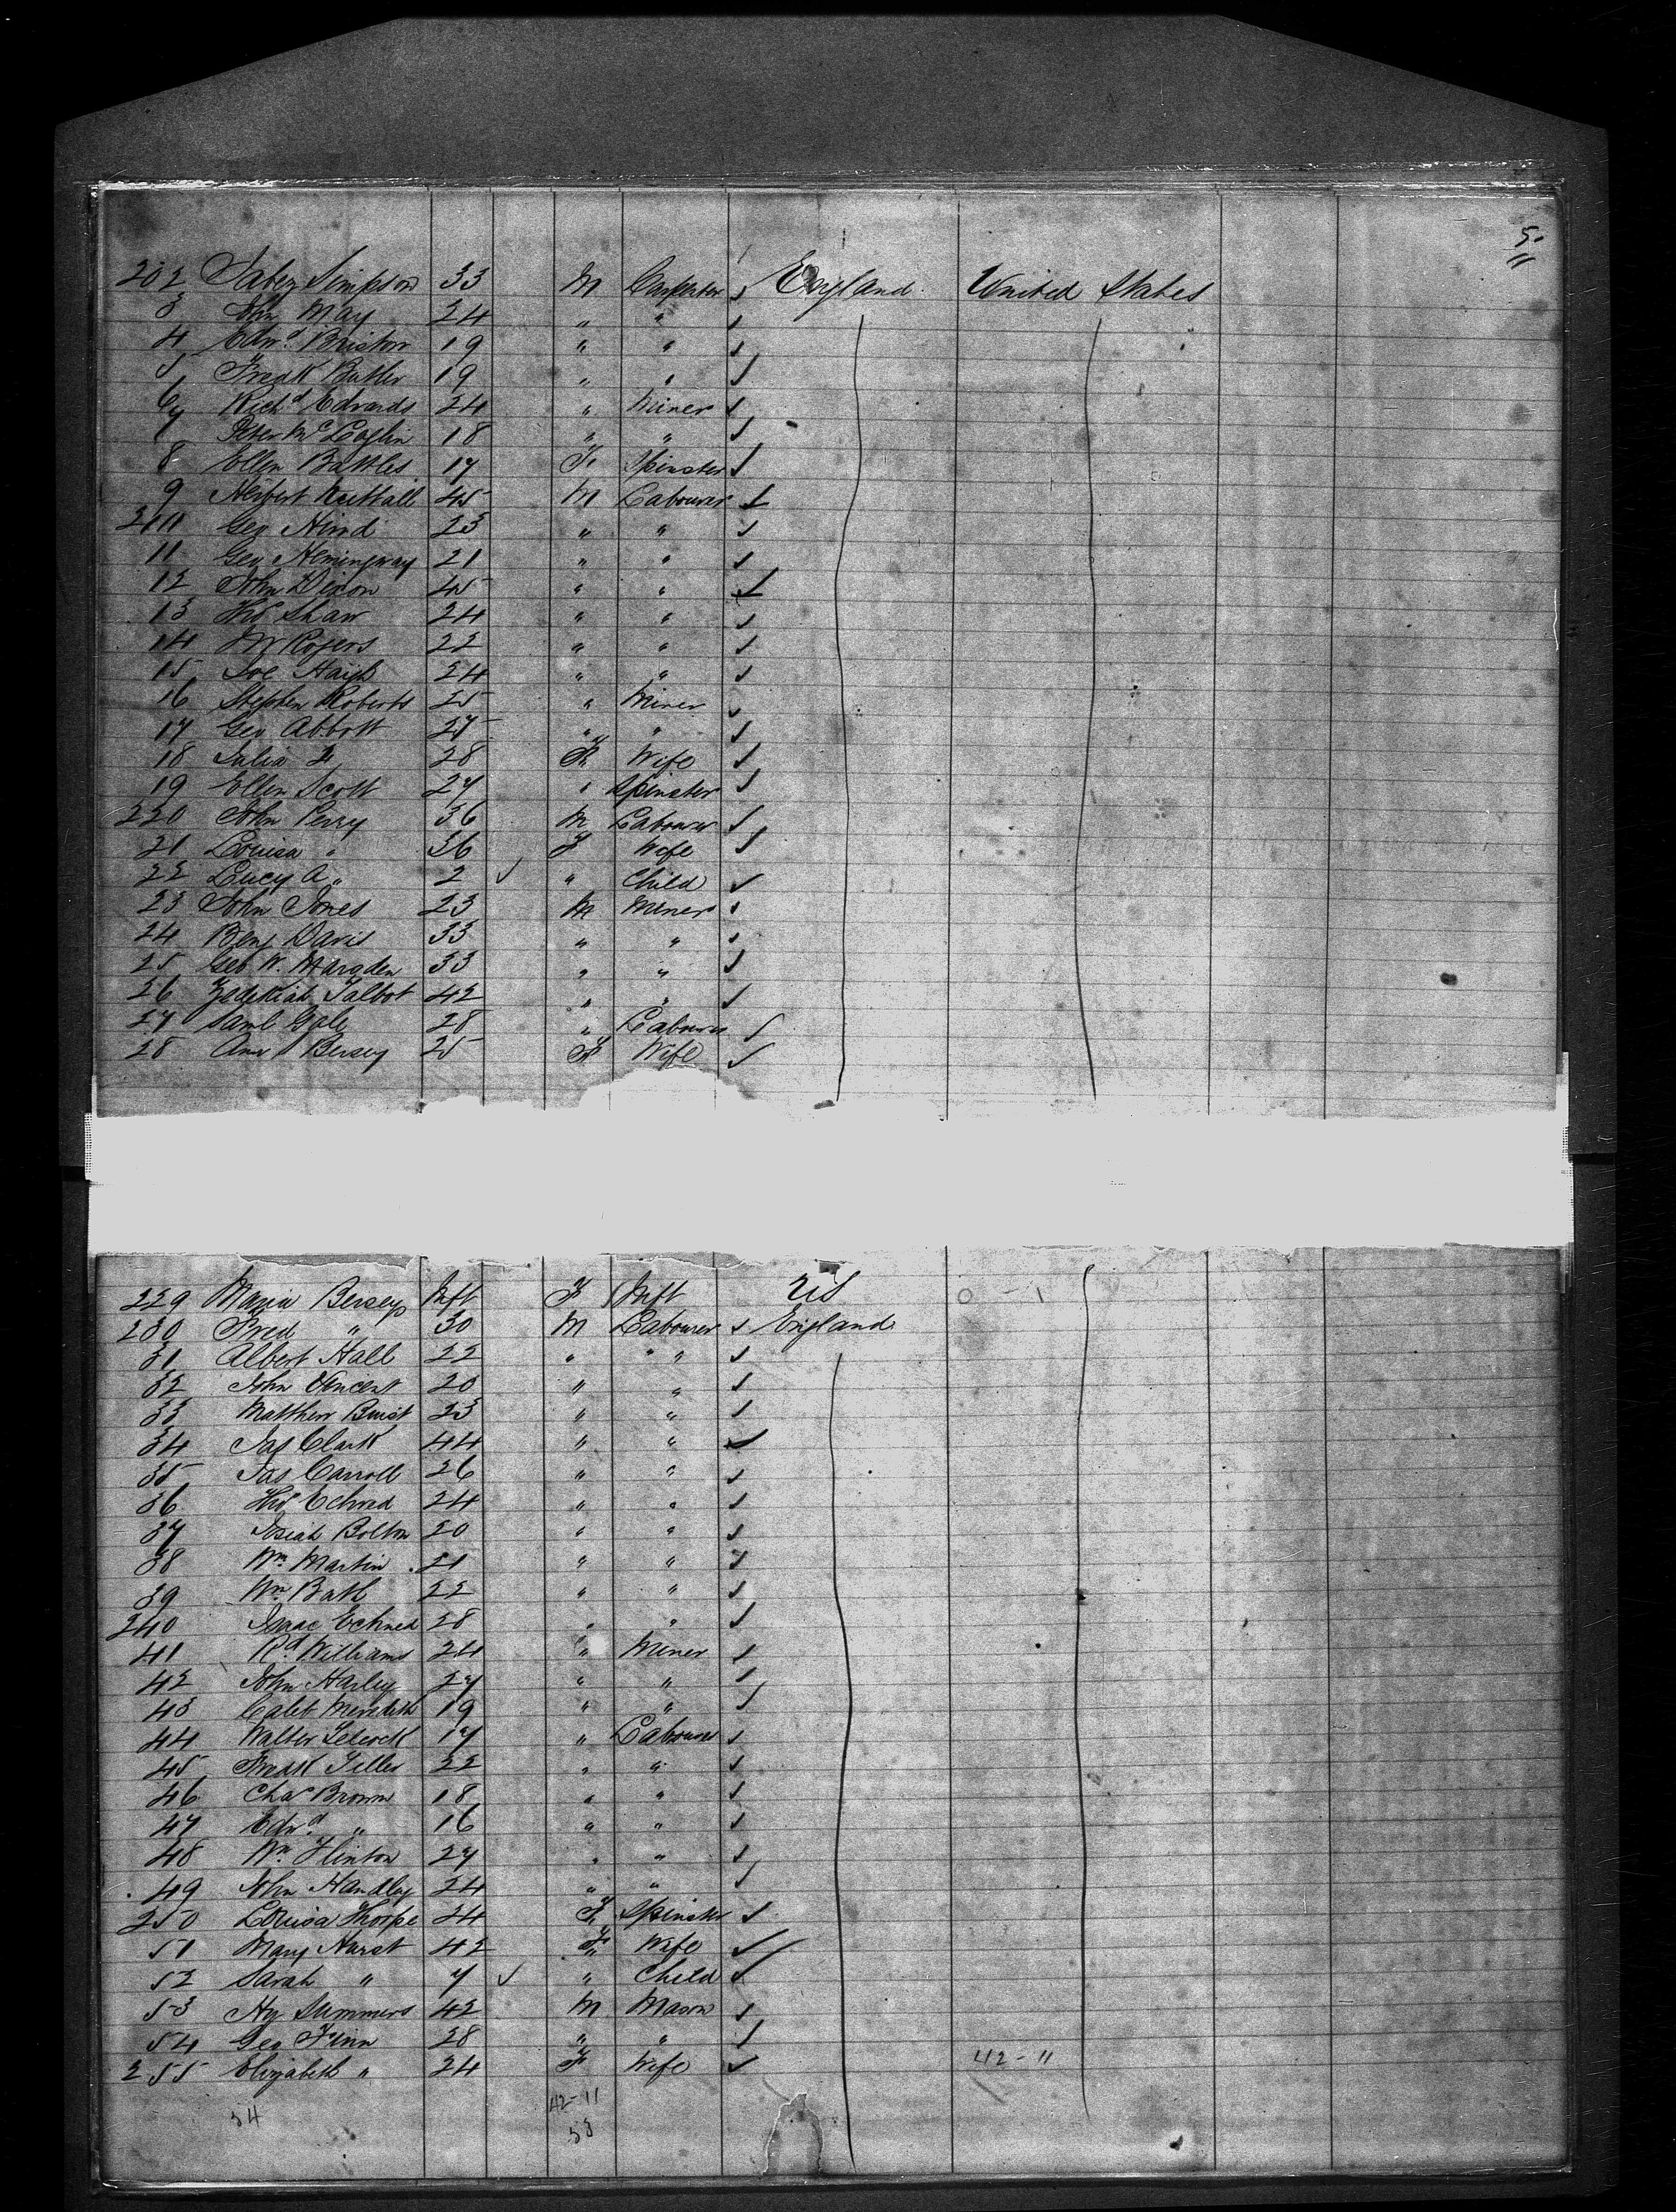 5
202 Jabez Simpson 33 M Carpenter England United States
3 John May 24 " "
4 Edwd Bristow 19 " "
5 Fredk Butler 19 " "
6 Richd Edwards 24 " Miner
7 Peter McLoglin 18 " "
8 Ellen Battles 17 F Spinster
9 Herbert Nuttall 45 M Labourer
210 Geo Hind 23 " "
11 Geo Hemingway 21 " "
12 John Dixon 45 " "
13 Thos Shaw 24 " "
14 Rogers 22 " "
15 Joe Haigh 24 " "
16 Stephen Roberts 25 " Miner
17 Geo Abbott 25 " "
18 Julia " 28 F Wife
19 Ellen Scott 27 " Spinster
220 John Perry 36 M Labourer
21 Louisa " 36 F Wife
22 Lucy A " 2 " Child
23 John Jones 23 M Miner
24 Benj Davis 33 " "
25 Geo W. Marsden 33 " "
26 Zedekiah Talbot 42 " "
27 Saml Gale 28 " Labourer
28 Ann Bersey 25 F Wife
229 Maria Bersey Inft F Inft US 0 - 1
230 Fred " 30 M Labourer England
31 Albert Hall 22 " "
32 John Vincent 20 " "
33 Matthew Buist 23 " "
34 Jas Clark 44 " "
35 Jas Carroll 26 " "
36 Thos 24 " "
37 Josiah Bolton 20 " "
38 Wm Martin 21 " "
39 Wm Bath 22 " "
240 Isaac 28 " "
41 Rd Williams 24 " Miner
42 John Harley 27 " "
43 Caleb Meredith 19 " "
44 Walter 17 " Labourer
45 Fredk Tiller 22 " "
46 Chas Brown 18 " "
47 Edwd " 16 " "
48 Wm Flinton 27 " "
49 John Handley 24 " "
250 Louisa Thorpe 24 F Spinster
51 Mary Hurst 42 F Wife
52 Sarah " 7 " Child
53 Hy Summers 42 M Mason
54 Geo Finn 28 " "
255 Elizabeth " 24 F Wife 42 - 11
54 42-11
53